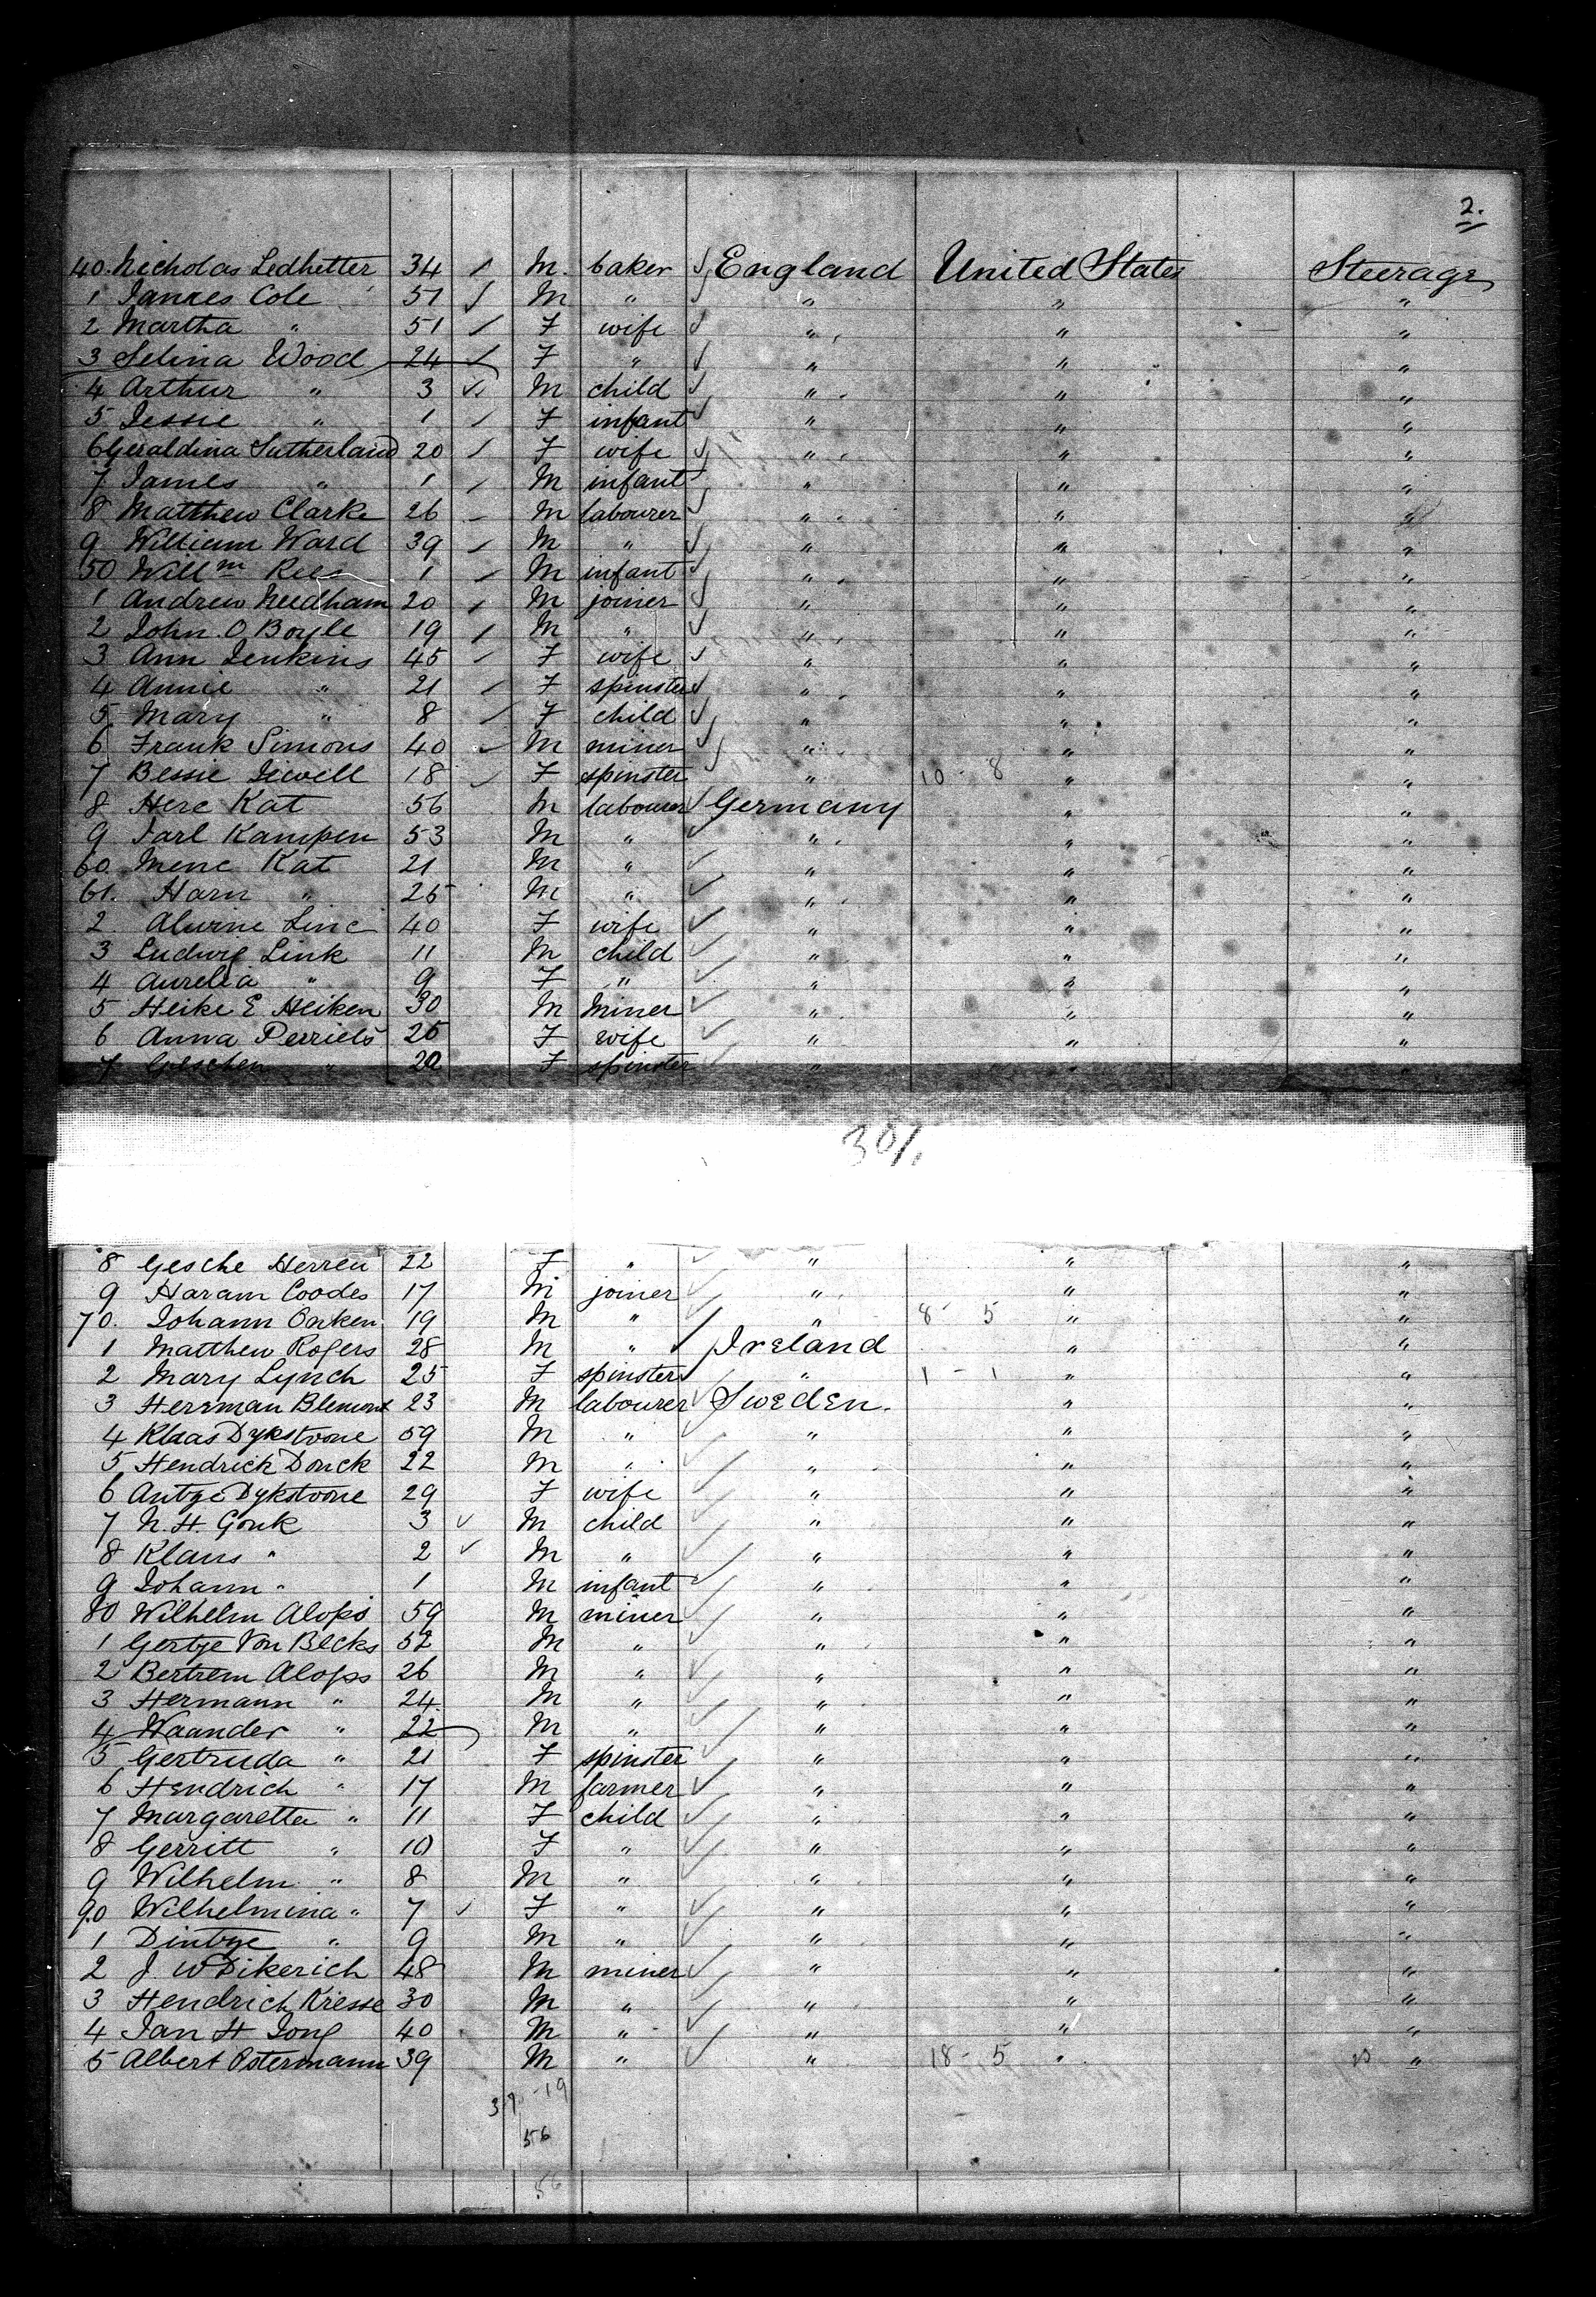 2.
40. Nicholas Ledhetter 34 M. baker England United States Steerage
1 James Cole 51 M " " " "
2 Martha " 51 F wife " " "
3 Selina Wood 24 F " " " "
4 Arthur " 3 M child " " "
5 Jessie " 1 F infant " " "
6 Geraldina Sutherland 20 F wife " " "
7 James " 1 M infant " " "
8 Matthew Clarke 26 M labourer " " "
9 William Ward 39 M " " " "
50 Willm Rees 1 M infant " " "
1 Andrew Needham 20 M joiner " " "
2 John O Boyle 19 M " " " "
3 Ann Jenkins 45 F wife " " "
4 Annie " 21 F spinster " " "
5 Mary " 8 F child " " "
6 Frank Simons 40 M miner " " "
7 Bessie Jewell 18 F spinster " 10 - 8 " "
8 Here Kat 56 M labourer Germany " "
9 Jarl Kampen 53 M " " " "
60 Mene Kat 21 M " " " "
61. Harn " 25 M " " " "
2. Alwine Linc 40 F wife " " "
3 Ludwig Link 11 M child " " "
4 Aurelia " 9 F " " " "
5 Heike E Heiken 30 M miner " " "
6 Anna Perriels 25 F wife " " "
7 Geschen " 20 F spinster " " "
30/.
8 Gesche Herren 22 F " " " "
9 Haram Coodes 17 M joiner " " "
70. Johann Onken 19 M " " 8 - 5 " "
1 Matthew Rogers 28 M " Ireland " "
2 Mary Lynch 25 F spinster " 1 - 1 " "
3 Herman Blemont 23 M labourer Sweden. " "
4 Klaas Dykstvone 59 M " " " "
5 Hendrick Donck 22 M " " " "
6 Antje Dykstvone 29 F wife " " "
7 N. H. Gonk 3 M child " " "
8 Klaus " 2 M " " " "
9 Johann " 1 M infant " " "
80 Wilhelm Alops 59 M miner " " "
1 Gertje Von Becks 52 M " " " "
2 Bertrem Alops 26 M " " " "
3 Hermann " 24 M " " " "
4 Waander " 22 M " " " "
5 Gertruda " 21 F spinster " " "
6 Hendrich " 17 M farmer " " "
7 Margaretta " 11 F child " " "
8 Gerritt " 10 F " " " "
9 Wilhelm " 8 M " " " "
90 Wilhelmina " 7 F " " " "
1 Dintye " 9 M " " " "
2 J. W Dikerich 48 M miner " " "
3 Hendrich Kresse 30 M " " " "
4 Jan H Jong 40 M " " " "
5 Albert Ostermann 39 M " " 18 - 5 " "
37 - 19
56
56